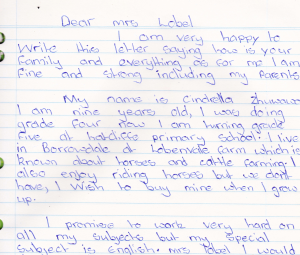 Dear mrs Lobel
I am very happy to
Write this letter saying how is your
family and everything as for me I am
fine and strong including my Parents
My name is Cindella Zhuwawo
I am nine years old, I was doing
grade four now I am turning grade
five at hatcliffe primary school. I live
in Borrowdale at Lobenvale farm which is
known about horses and cattle farming I
also enjoy riding horses but we dont
have, I Wish to buy mine when I grow
up.
I promise to work very hard on
all my subjects but my special
subject is English. mrs Lobel I would